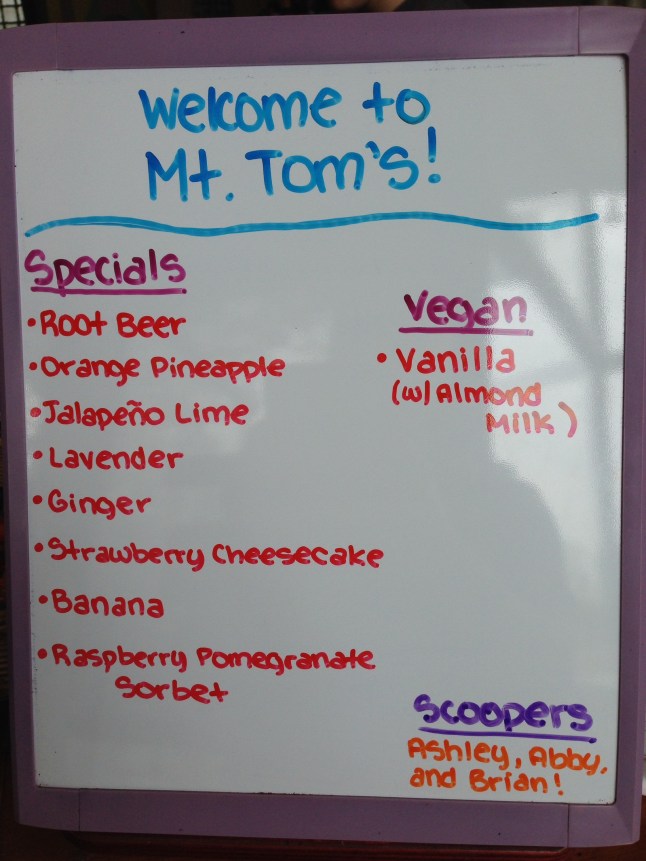 Welcome to
Mt. Tom's!
Specials
• Root Beer
• Orange Pineapple
• Jalapeño Lime
• Lavender
• Ginger
• Strawberry Cheesecake
• Banana
• Raspberry Pomegranate
Sorbet
Vegan
• Vanilla
(w/ Almond
Milk)
Scoopers
Ashley, Abby,
and Brian!